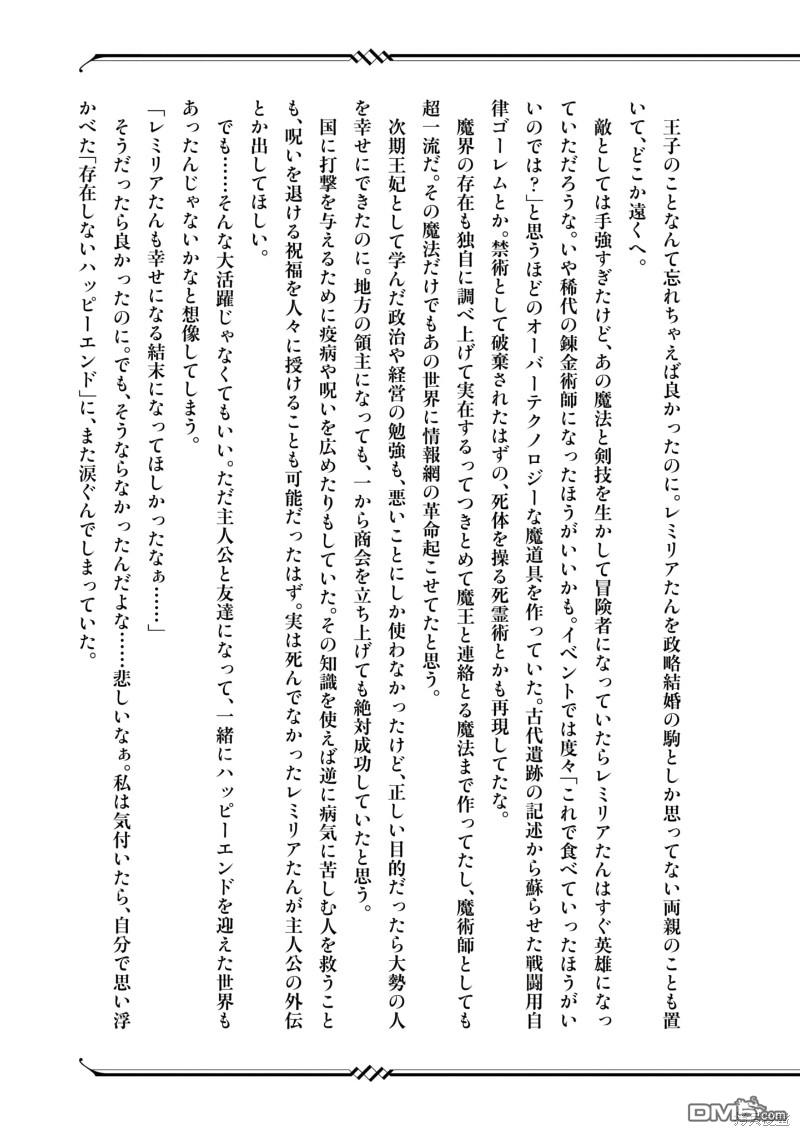 王子のことなんて忘れちゃえば良かったのに。レミリアたんを政略結婚の駒としか思ってない両親のことも置
いて、どこか遠くへ。
敵としては手強すぎたけど、あの魔法と剣技を生かして冒険者になっていたらレミリアたんはすぐ英雄になっ
ていただろうな。いや稀代の錬金術師になったほうがいいかも。イベントでは度々「これで食べていったほうがい
いのでは？」と思うほどのオーバーテクノロジーな魔道具を作っていた。古代遺跡の記述から蘇らせた戦闘用自
律ゴーレムとか。禁術として破棄されたはずの、死体を操る死霊術とかも再現してたな。
魔界の存在も独自に調べ上げて実在するってつきとめて魔王と連絡とる魔法まで作ってたし、魔術師としても
超一流だ。その魔法だけでもあの世界に情報網の革命起こせてたと思う。
次期王妃として学んだ政治や経営の勉強も、悪いことにしか使わなかったけど、正しい目的だったら大勢の人
を幸せにできたのに。地方の領主になっても、一から商会を立ち上げても絶対成功していたと思う。
国に打撃を与えるために疫病や呪いを広めたりもしていた。その知識を使えば逆に病気に苦しむ人を救うこと
も、呪いを退ける祝福を人々に授けることも可能だったはず。実は死んでなかったレミリアたんが主人公の外伝
とか出してほしい。
でも……そんな大活躍じゃなくてもいい。ただ主人公と友達になって、一緒にハッピーエンドを迎えた世界も
あったんじゃないかなと想像してしまう。
「レミリアたんも幸せになる結末になってほしかったなぁ……」
そうだったら良かったのに。でも、そうならなかったんだよな……悲しいなぁ。私は気付いたら、自分で思い浮
かべた「存在しないハッピーエンド」に、また涙ぐんでしまっていた。